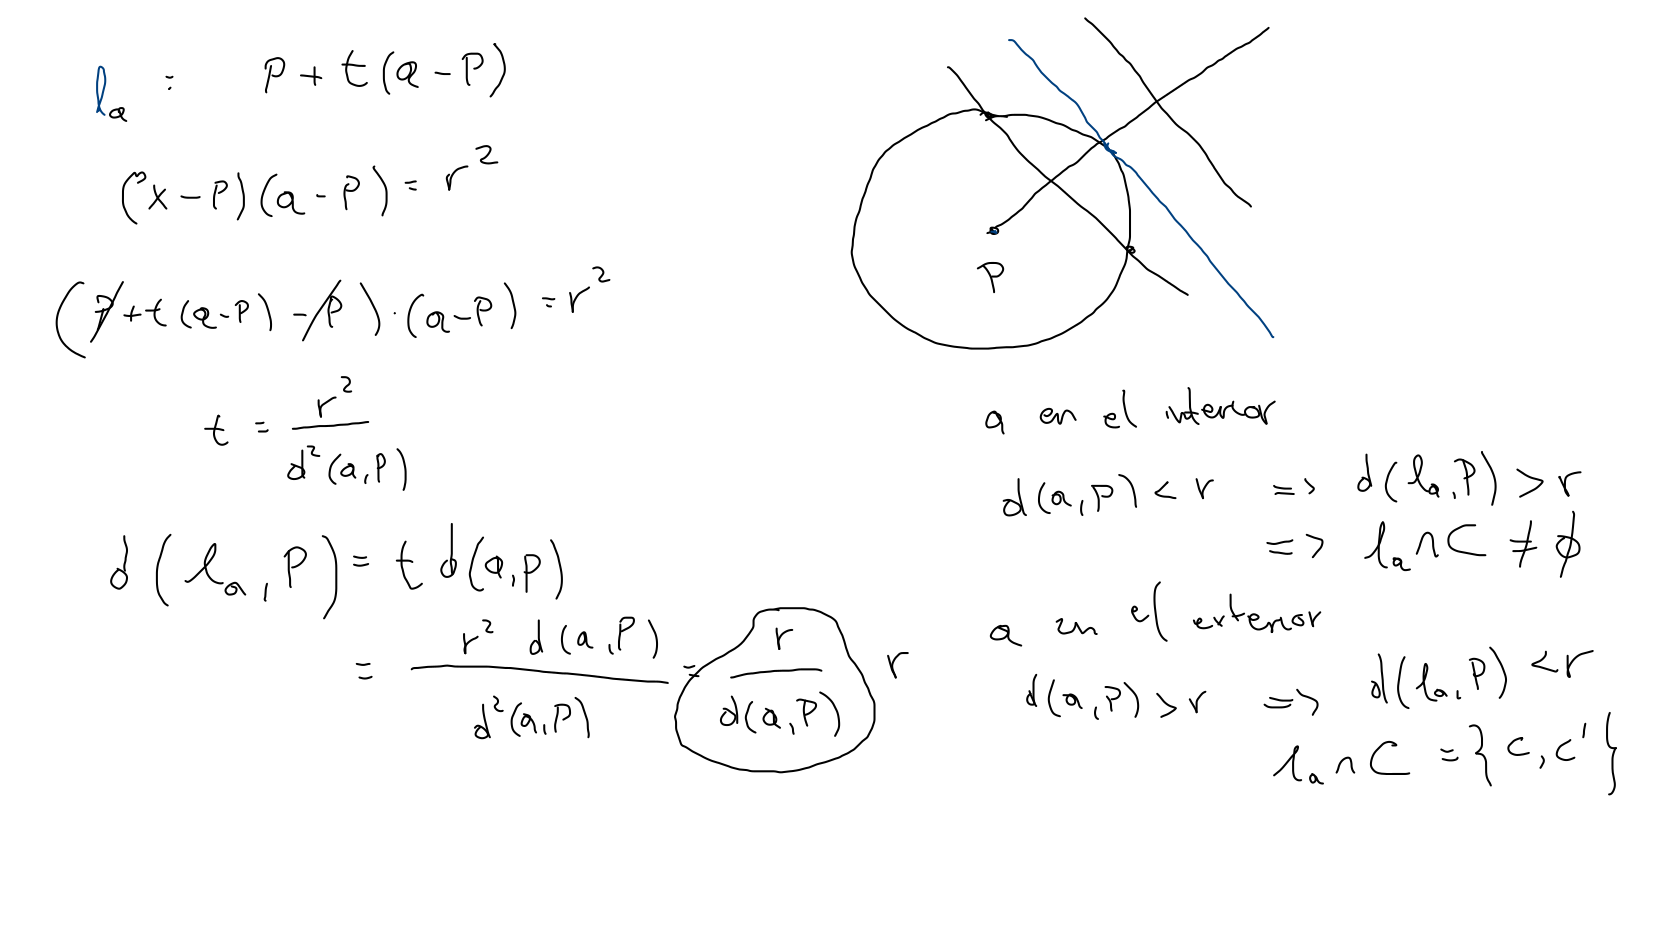 la : P + t(a - P)
(x - P)(a - P) = r²
(P + t(a-P) - P) · (a-P) = r²
t = r² / d²(a,P)
d(la, P) = t d(a,P)
= r² d(a,P) / d²(a,P) = r / d(a,P) r
P
a en el interior
d(a,P) < r => d(la,P) > r
=> la ∩ C ≠ ϕ
a en el exterior
d(a,P) > r => d(la,P) < r
la ∩ C = {c, c'}